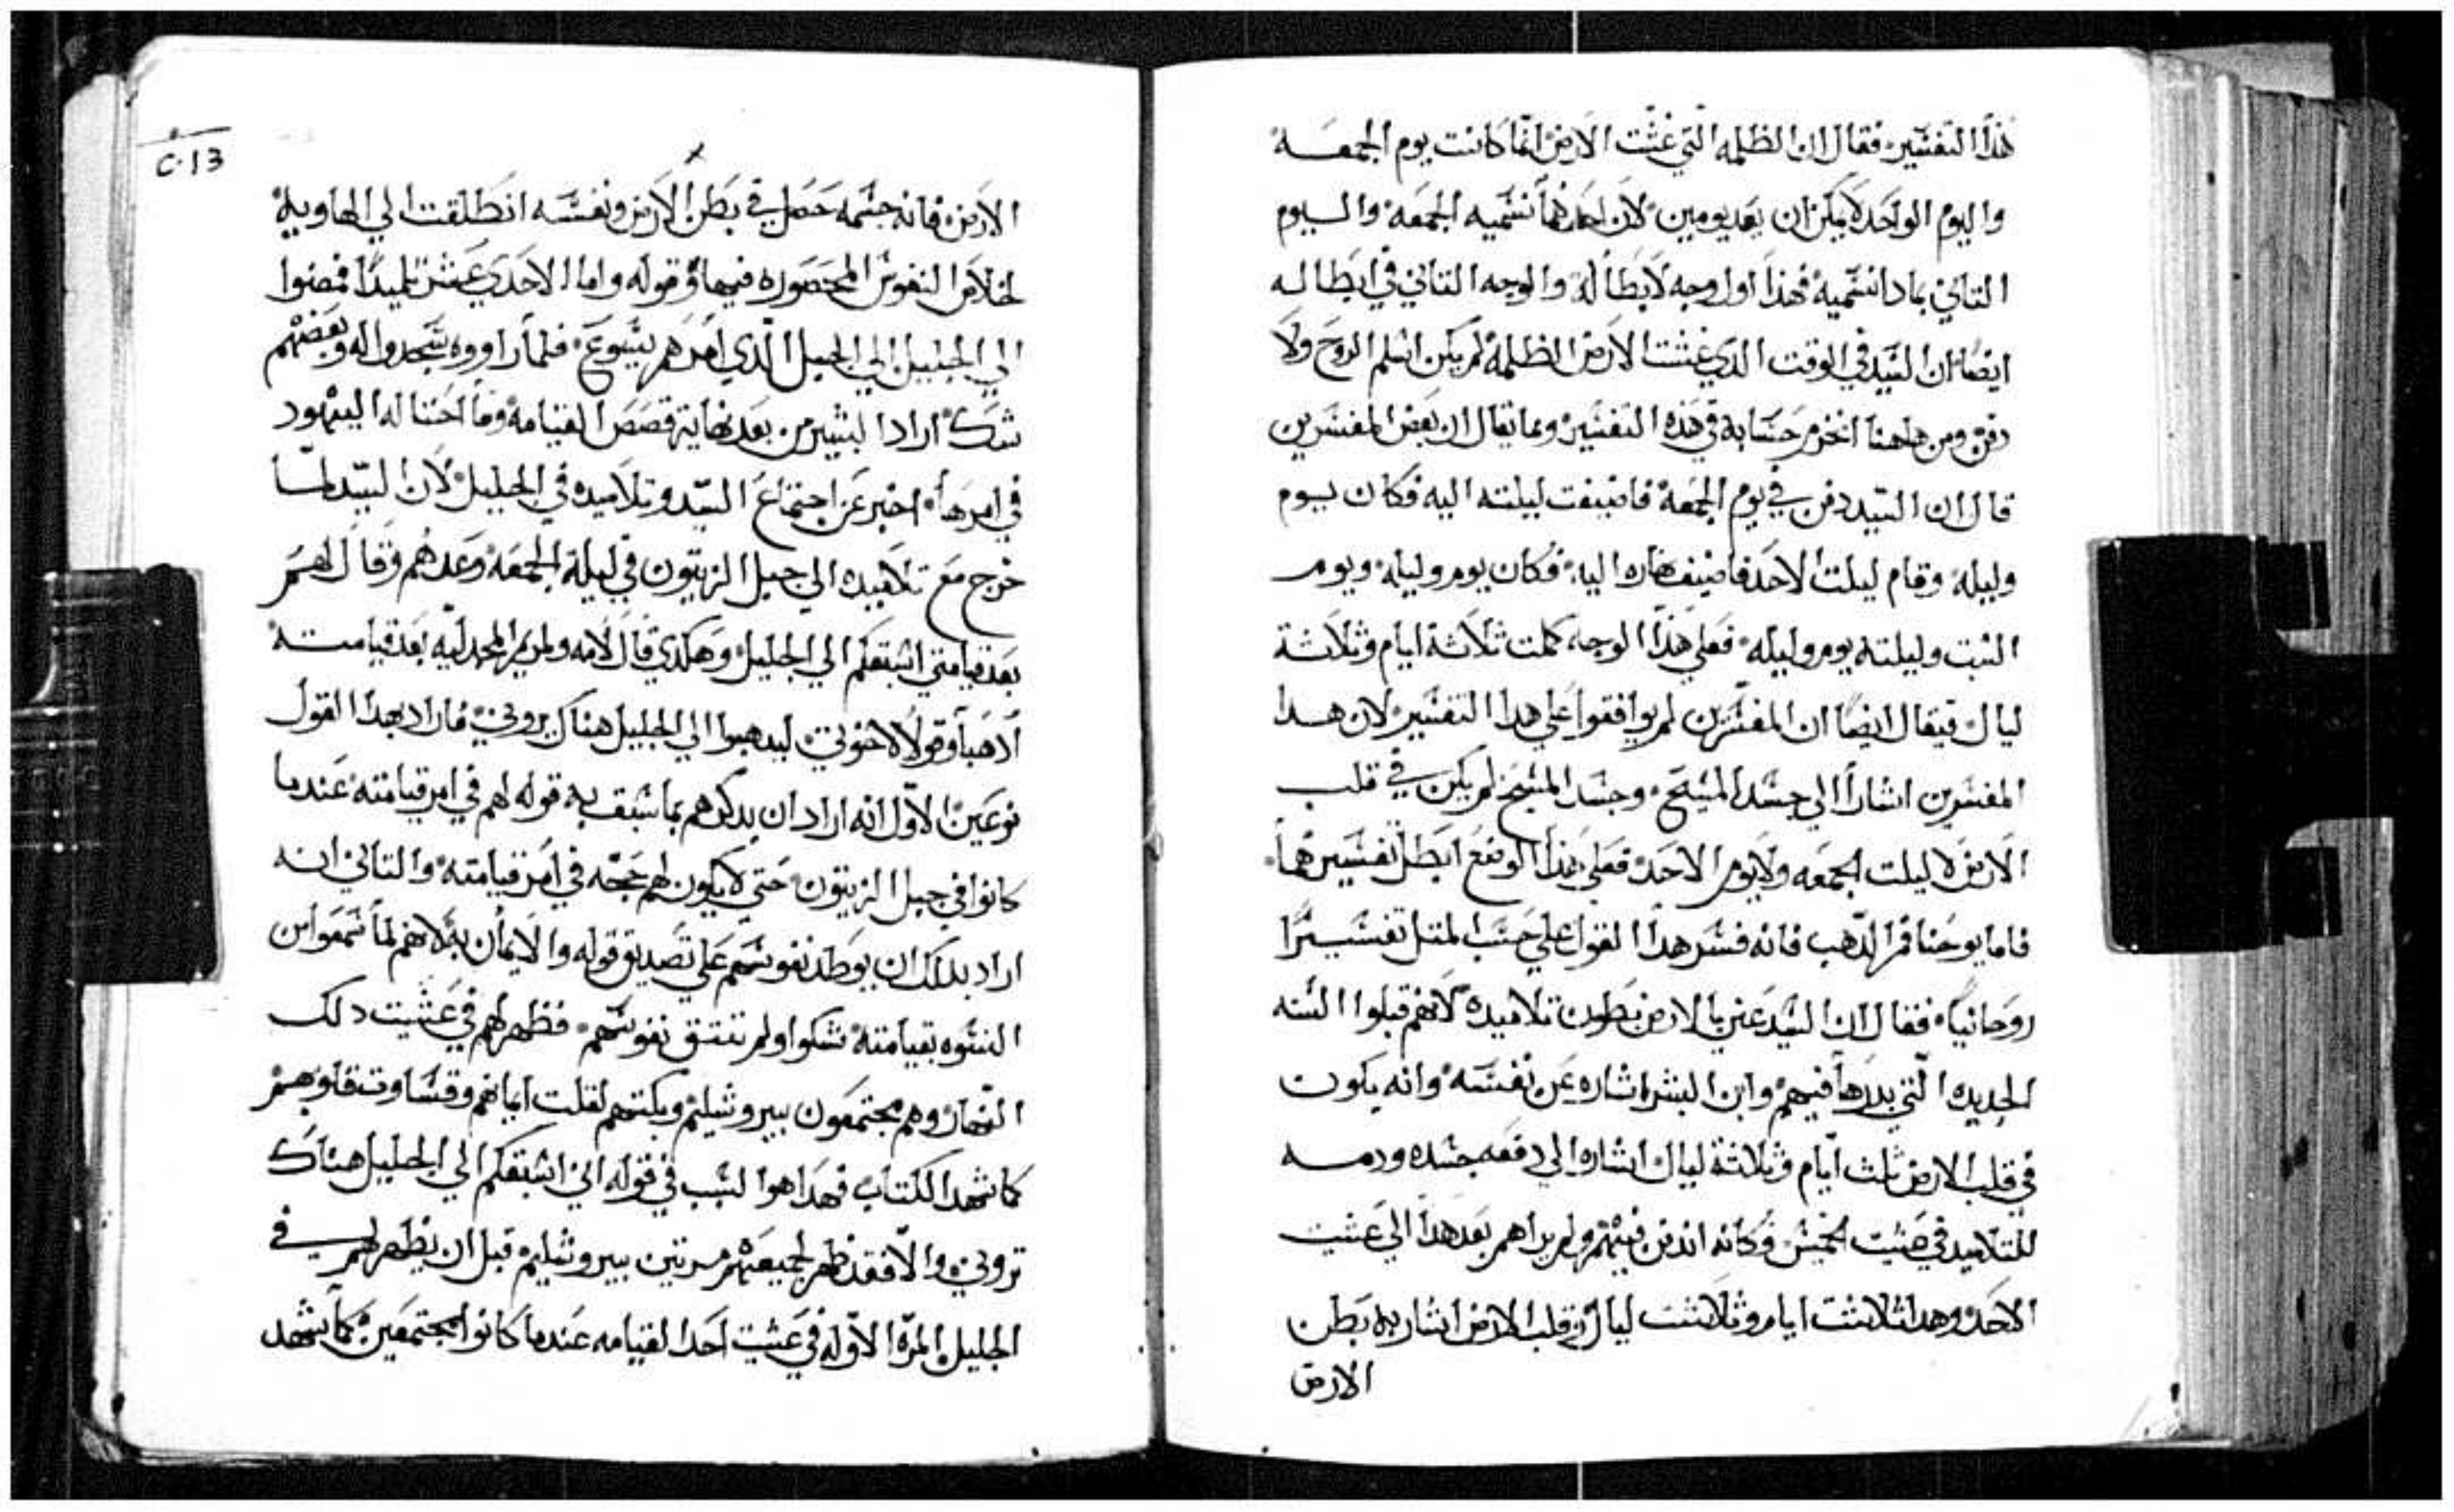 هذا التفسير فقال ان الظلمه التي غشت الارض انما كانت يوم الجمعه
واليوم الواحد لا يمكن ان يعد يومين لان احدهما نسميه الجمعه واليوم
التاني بمادا نسميه فهذا اول وجه لابطاله والوجه التاني في ابطاله
ايضا ان السيد في الوقت الدي غشت الارض الظلمة لم يكن اسلم الروح ولا
دفن ومن هاهنا انخرم حسابه في هذه التفسير ومما يقال ان بعض المفسرين
قال ان السيد دفن في يوم الجمعة فاضيفت ليلته اليه فكان يوم
وليله وقام ليلت الاحد فاضيف نهاره اليه فكان يوم وليله ويوم
السبت وليلته يوم وليله فعلي هذا الوجه كملت ثلاثة ايام وثلاثة
ليال فيقال ايضا ان المفسرين لم يوافقوا علي هدا التفسير لان هدا
المفسرين اشارا الي جسد المسيح وجسد المسيح لم يكن في قلب
الارض لا ليلت الجمعه ولا يوم الاحد فعلي هذا الوضع ابطل تفسيرهما
فاما يوحنا فم الدهب فانه فسر هدا القول علي حسب المتل تفسيرا
روحانيا فقال ان السيد عني بالارض بطون تلاميده لانهم قبلوا السنه
الجديده التي بدرها فيهم وابن البشر اشاره عن نفسه وانه يكون
في قلب الارض ثلث ايام وثلاثة ليال اشاره الي دفعه جسده ودمه
للتلاميد في عشيت الخميس فكانه اندفن فيهم ولم يراهم بعد هدا الي عشيت
الاحد وهدا ثلاثت ايام وثلاثت ليال في قلب الارض اشار به بطن
الارض
C.13
الارض فانه جسمه حصل في بطن الارض ونفسه انطلقت الي الهاوية
لخلاص النفوس المحصوره فيها وقوله واما الاحدي عشر تلميدا فمضوا
الي الجليل الي الجبل الذي امرهم يسوع فلما راووه سجدوا له وبعضهم
شك اراد البشير من بعد نهاية قصص القيامة وما احتاله اليهود
في امرها اخبر عن اجتماع السيد وتلاميده في الجليل لان السيد لما
خرج مع تلاميده الي جبل الزيتون في ليلة الجمعه وعدهم وقال لهم
بعد قيامتي اسبقكم الي الجليل وهكدي قال لامه ولمريم المجدليه بعد قيامته
ادهبا وقولا لاخوتي ليدهبوا الي الجليل هناك يروني فاراد بهدا القول
نوعين الاول انه اراد ان يدكرهم بما سبق به قوله لهم في امر قيامته عندما
كانوا في جبل الزيتون حتي لا يكون لهم حجه في امر قيامته والتاني انه
اراد بدلك ان يوطد نفوسهم علي تصديق قوله والايمان به لانهم لما سمعوا من
النسوه بقيامته شكوا ولم تتق نفوسهم فظهر لهم في عشيت دلك
النهار وهم مجتمعون بيروشليم وبكتهم لقلت ايمانهم وقساوت قلوبهم
كما شهد الكتاب فهدا هو السبب في قوله اني اسبقكم الي الجليل هناك
تروني والا فقد ظهر لجميعهم مرتين بيروشليم قبل ان يظهر لهم في
الجليل المرة الاوله في عشيت احد القيامه عندما كانوا مجتمعين كما شهد